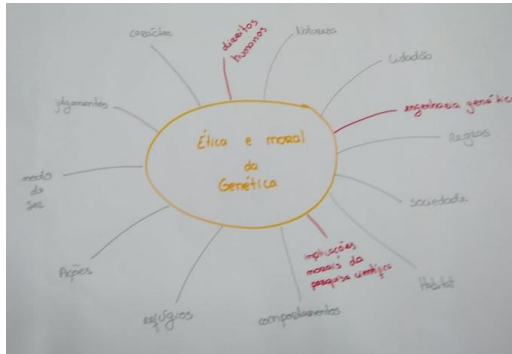 Ética e moral
da
Genética
direitos
humanos
Natureza
Cidadão
engenharia genétic
Regras
sociedade
Habitat
implicações
morais da
pesquisa científica
comportamentos
refúgios
Ações
modo
de
ser
julgamentos
caracter